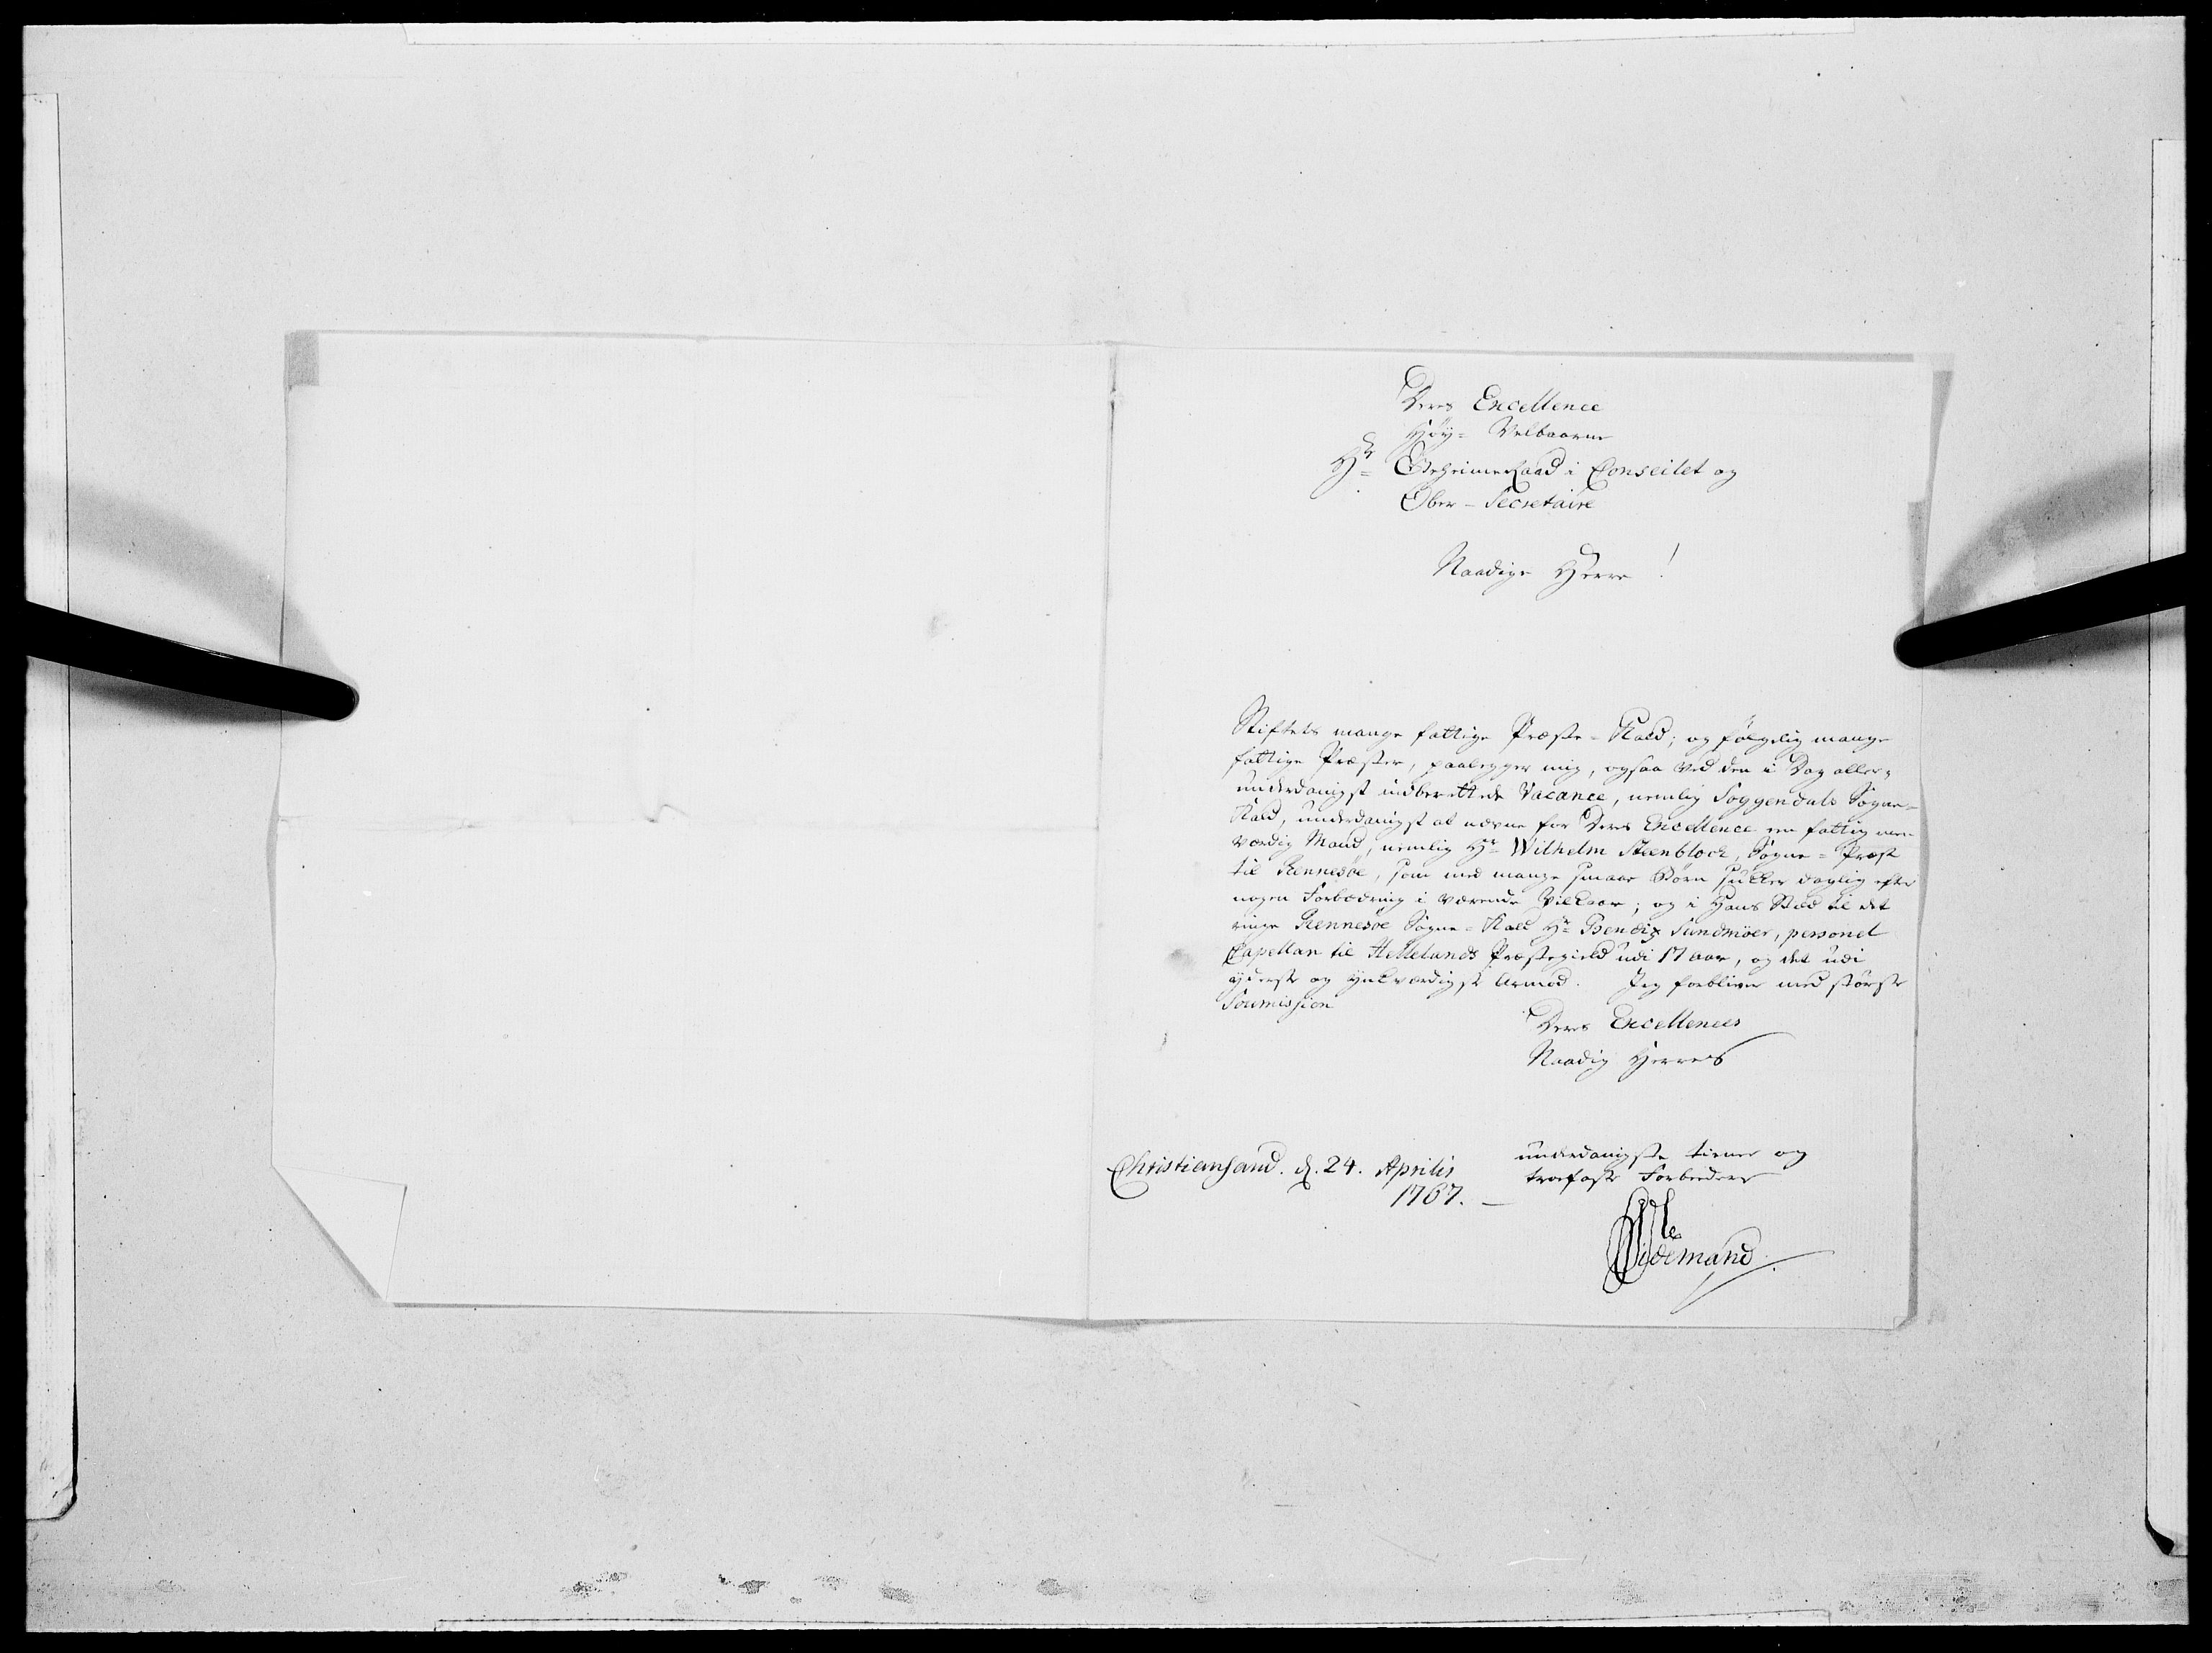 Deres Excellence
Høy- Velbaarne
Hr Geheimeraad i Conseilet og
Ober-Secretaire
Naadige Herre!
Stiftets mange fattige Præste-Kald; og følgelig mange
fattige Præster, paalegger mig, ogsaa ved den i Dag aller-
underdanigst indberettede Vacance, nemlig Soggendals Sogne-
Kald, underdanigst at nævne for Deres Excellence en fattig men
værdig Mand, nemlig Hr Wilhelm Steenblock, Sogne-Præst
til Rennesöe, som med mange smaae Børn sukker daglig efter
nogen Forbedring i værende Vilkaar; og i Hans Sted til det
ringe Rennesöe Sogne-Kald Hr Bendix Sundmöer, personel
Capellan til Hellelands Præstegield udi 17 aar, og det udi
yderste og ynkværdigste Armod. Jeg forbliver med største
Soumission
Deres Excellences
Naadig Herres
Christiansand. d. 24. Aprilis
1767.
underdanigste tiener og
troefaste Forbeder
Tidemand